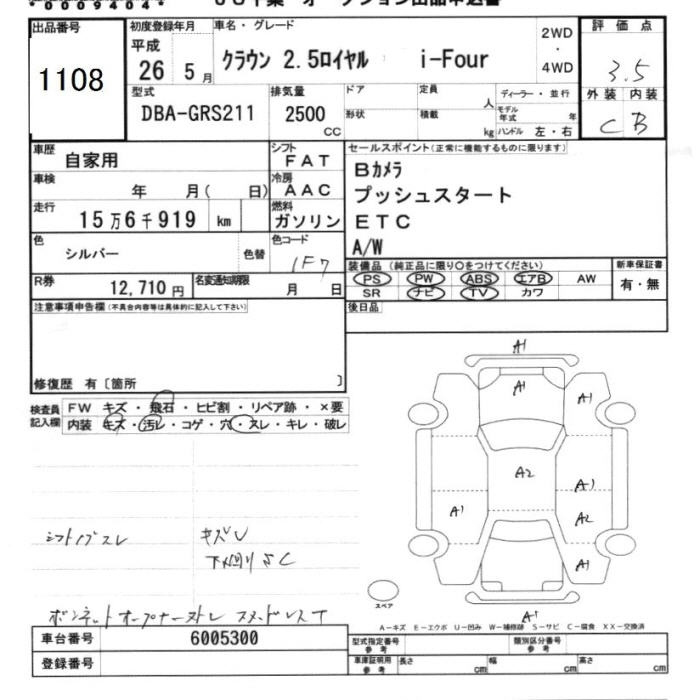 *0009404*
出品番号
1108
初度登録年月
平成
26 5月
車名・グレード
クラウン 2.5ロイヤル i-Four
2WD
・
4WD
評価点
3.5
外装 内装
C B
型式
DBA-GRS211
排気量
2500
CC
ドア
形状
定員
人
積載
kg
ディーラー・並行
モデル年式 年
ハンドル 左・右
車歴
自家用
シフト
FAT
車検
年 月( 日)
冷房
AAC
走行
15万6千919 km
燃料
ガソリン
色
シルバー
色替
色コード
1F7
R券
12,710円
名変通知期限
月 日
セールスポイント(正常に機能するものに限ります)
Bカメラ
プッシュスタート
ETC
A/W
装備品(純正品に限り○をつけてください)
PS PW ABS エアB AW
SR ナビ TV カワ
新車保証書
有・無
後日品
注意事項申告欄(不具合内容等は具体的に記入して下さい)
修復歴 有〔箇所 〕
検査員
記入欄
FW キズ・飛石・ヒビ割・リペア跡・×要
内装 キズ・汚レ・コゲ・穴・スレ・キレ・破レ
シフトノブスレ
キズU
下廻りSC
A1
A1
A1
A2
A1
A1
A2
A1
A1
スペア
A-キズ E-エクボ U-凹み W-補修跡 S-サビ C-腐食 XX-交換済
車台番号
6005300
登録番号
型式指定番号
参考
類別区分番号
参考
車庫証明用
参考
長さ cm
幅 cm
高さ cm